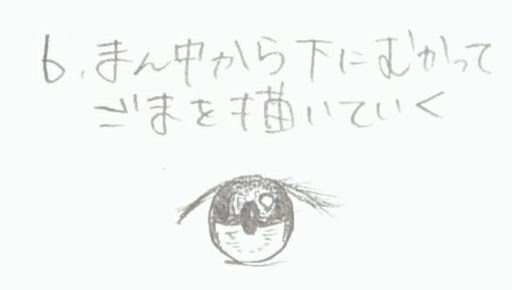 6.まん中から下にむかって
ごまを描いていく